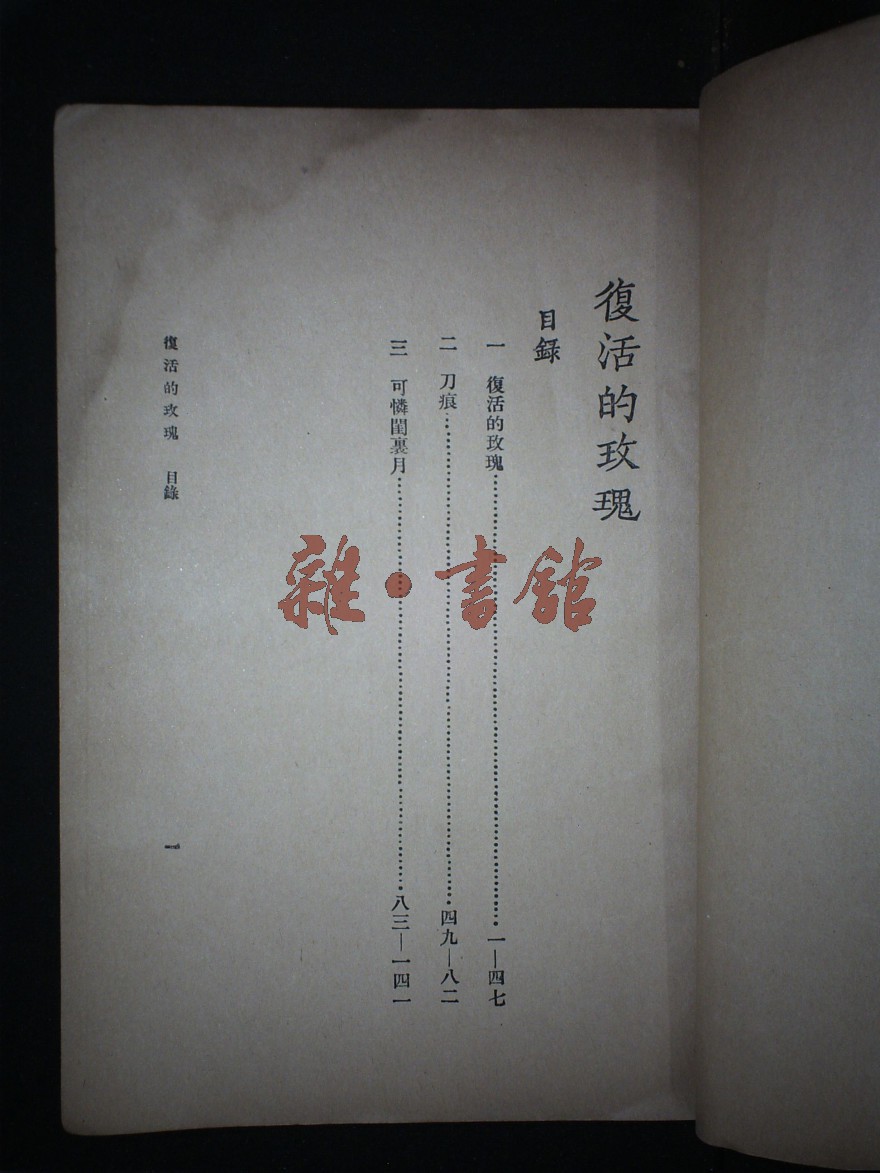 復活的玫瑰
目錄
一 復活的玫瑰……一—四七
二 刀痕……四九—八二
三 可憐閨裏月……八三—一四一
復活的玫瑰 目錄
一
雜·書館